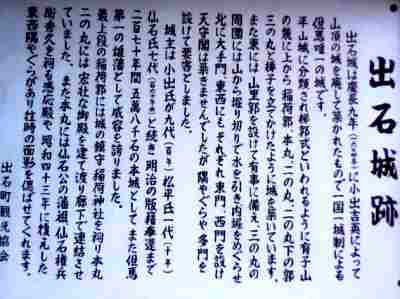 出石城跡
出石城は慶長九年(一六〇四年)に小出吉英によって
山頂の城を廃して築かれたもので一国一城制による
但馬唯一の城です。
平山城に分類され梯郭式といわれるように有子山
の麓に上から稲荷郭、本丸、二の丸、二の丸下の郭
三の丸と梯子を立てかけたように城を築いています。
また東には山里郭を設けて有事に備え、三の丸の
周囲には山から掘り切りで水を引き内堀をめぐらせ
北に大手門、東西にもそれぞれ東門、西門を設け
天守閣は築きませんでしたが隅やぐらや多門を
設けて要害としました。
城主は小出氏が九代 松平氏一代
仙石氏七代 と続き明治の版籍奉還まで
二百七十年間五萬八千石の本城として、また但馬
第一の雄藩として威容を誇りました。
最上段の稲荷郭には城の鎮守稲荷神社を祠り本丸
二の丸には宏壮な御殿を建て渡り廊下で連結させ
ていました。また本丸には仙石公の藩祖仙石権兵
衛秀久を祠る感応殿や昭和四十三年に復元した
東西隅やぐらがあり往時の面影を偲ばせてくれます。
出石町観光協会